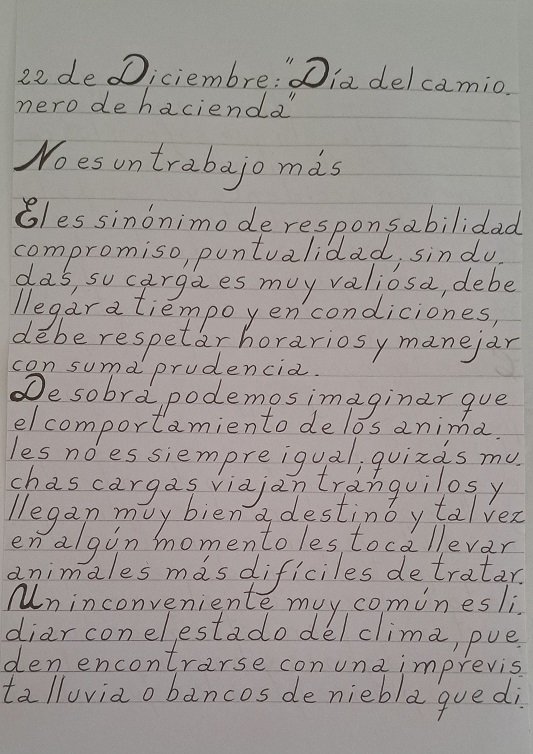 22 de Diciembre: "Día del camio.
nero de hacienda"
No es un trabajo más
El es sinónimo de responsabilidad
compromiso, puntualidad, sin du.
das, su carga es muy valiosa, debe
llegar a tiempo y en condiciones,
debe respetar horarios y manejar
con suma prudencia.
De sobra podemos imaginar que
el comportamiento de los anima.
les no es siempre igual, quizás mu.
chas cargas viajan tranquilos y
llegan muy bien a destino y tal vez
en algún momento les toca llevar
animales más difíciles de tratar.
Un inconveniente muy común es li.
diar con el estado del clima, pue.
den encontrarse con una imprevis.
ta lluvia o bancos de niebla que di.